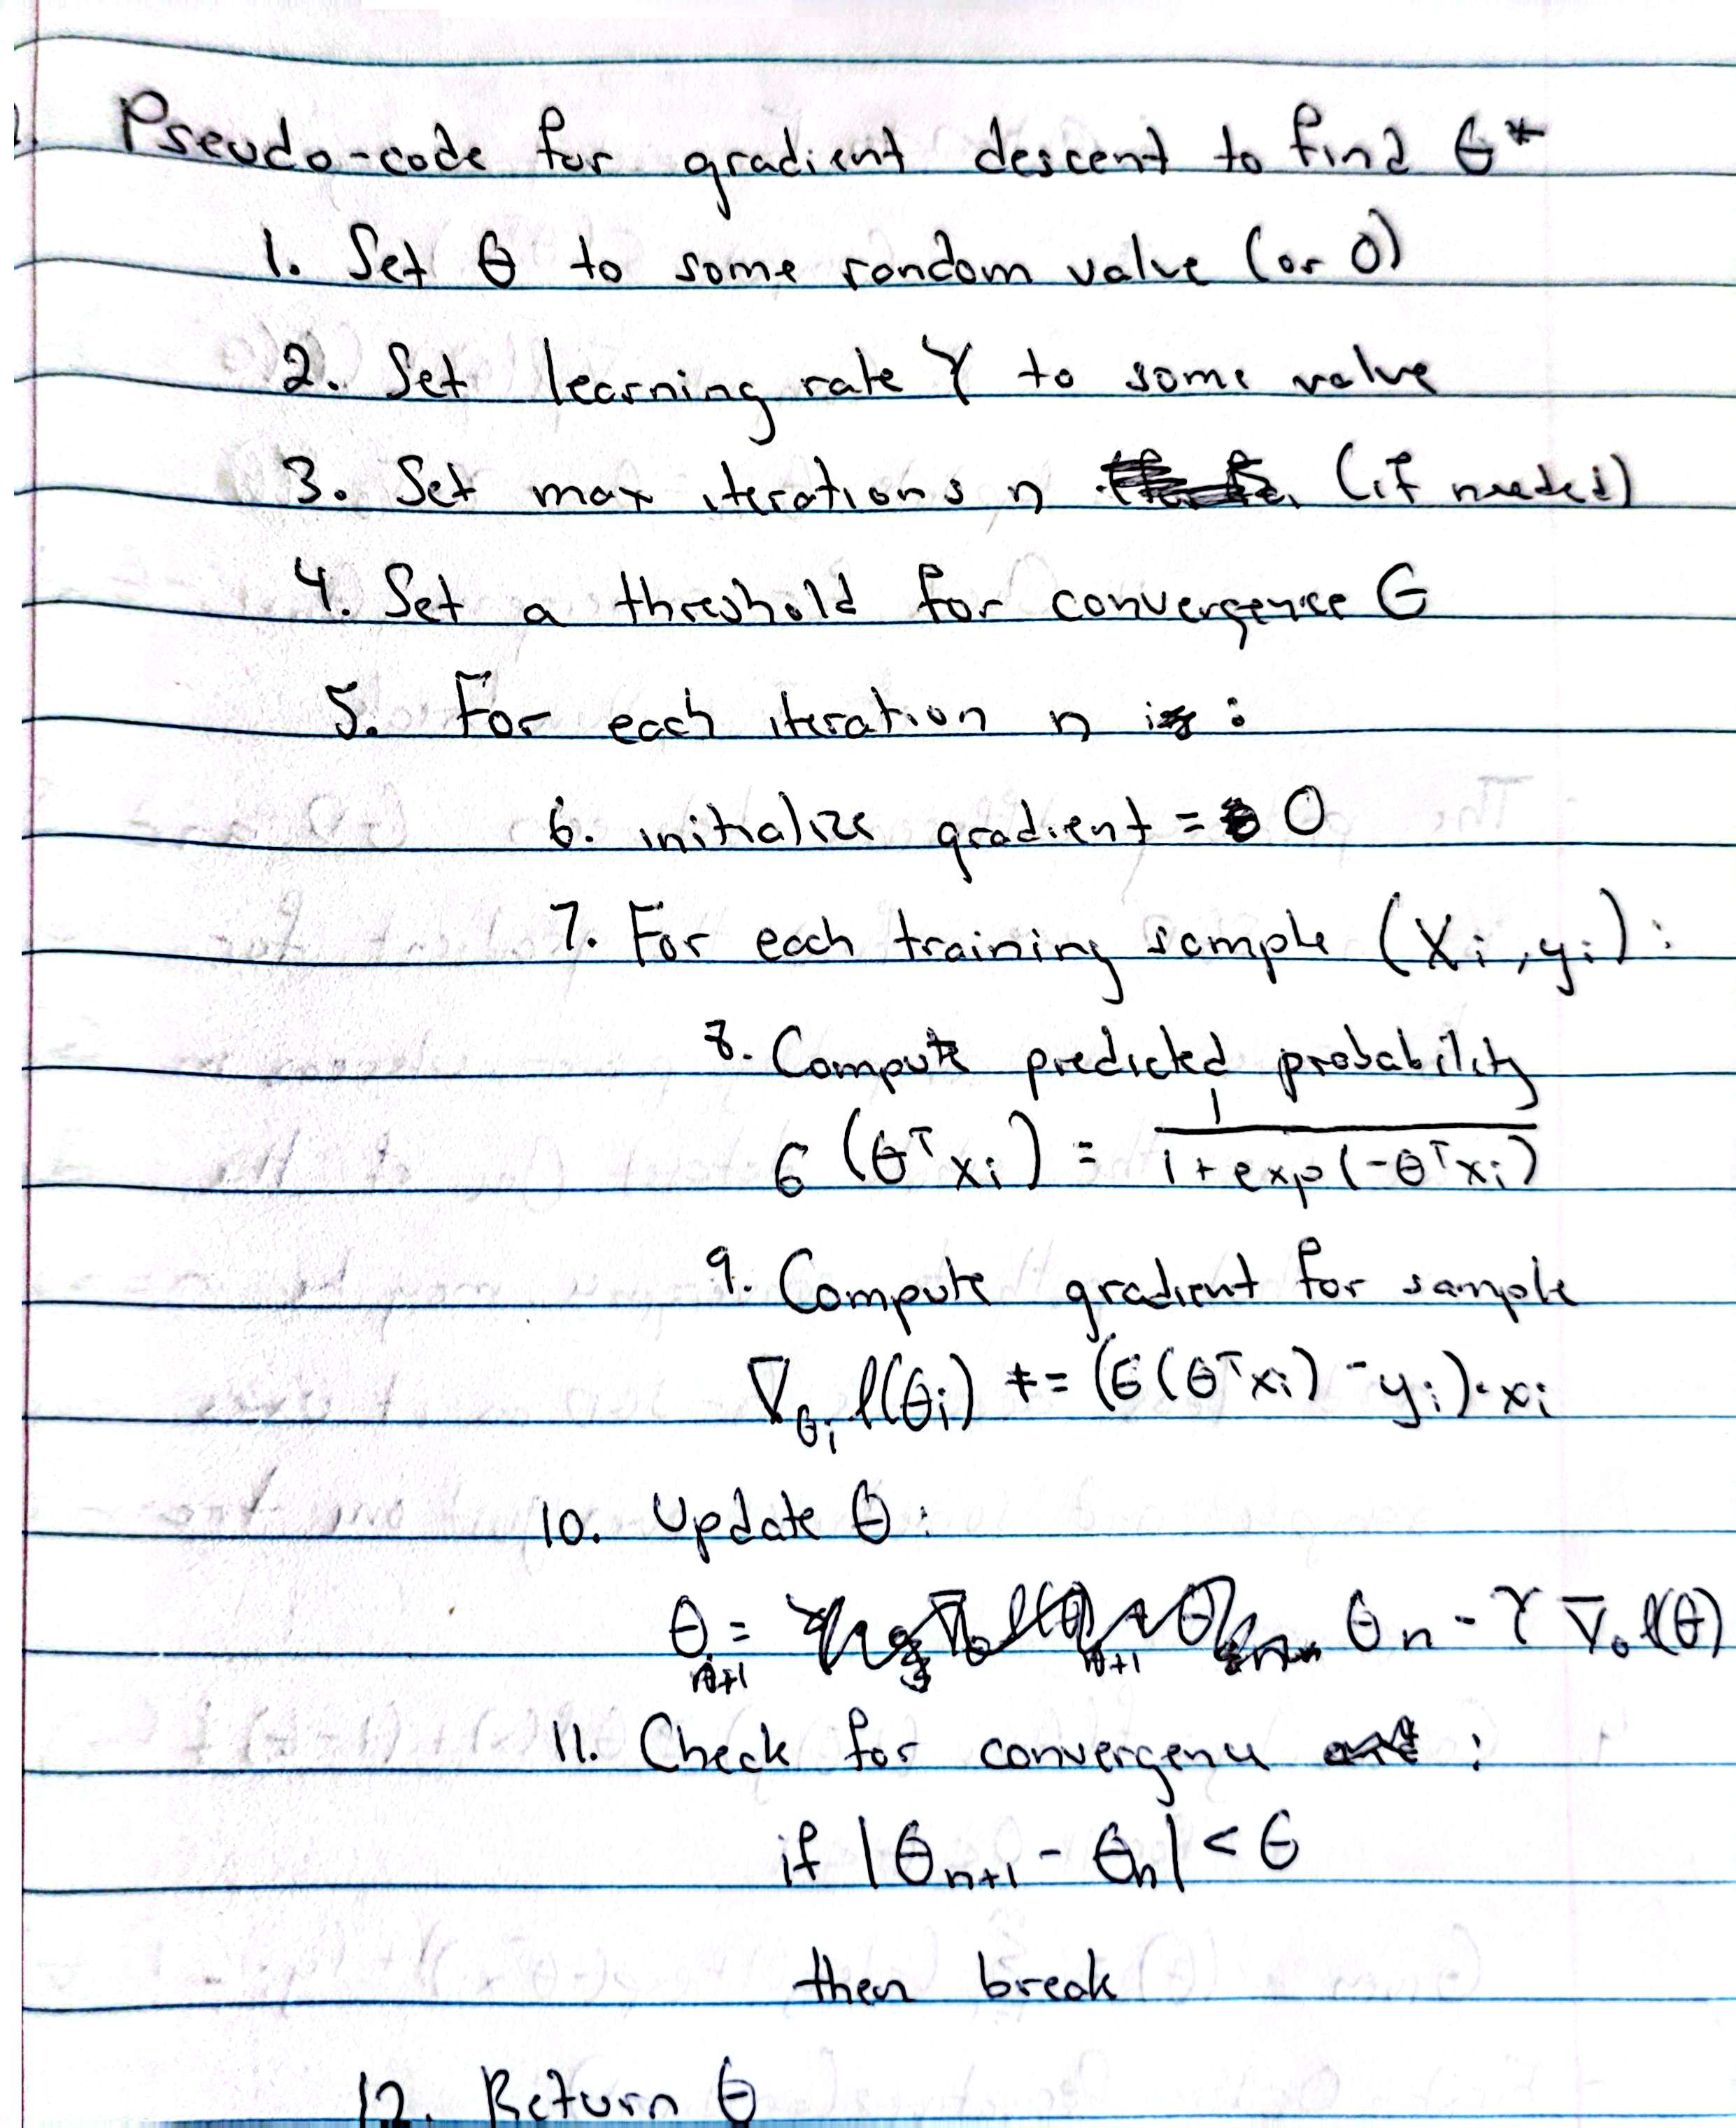 Pseudo-code for gradient descent to find θ*
1. Set θ to some random value (or 0)
2. Set learning rate γ to some value
3. Set max iterations n (if needed)
4. Set a threshold for convergence ϵ
5. For each iteration n :
6. initialize gradient = 0
7. For each training sample (Xi, yi):
8. Compute predicted probability
σ(θᵀxi) = 1 / (1 + exp(-θᵀxi))
9. Compute gradient for sample
∇θi l(θi) += (σ(θᵀxi) - yi)·xi
10. Update θ:
θn+1 = θn - γ ∇θ l(θ)
11. Check for convergence :
if |θn+1 - θn| < ϵ
then break
12. Return θ